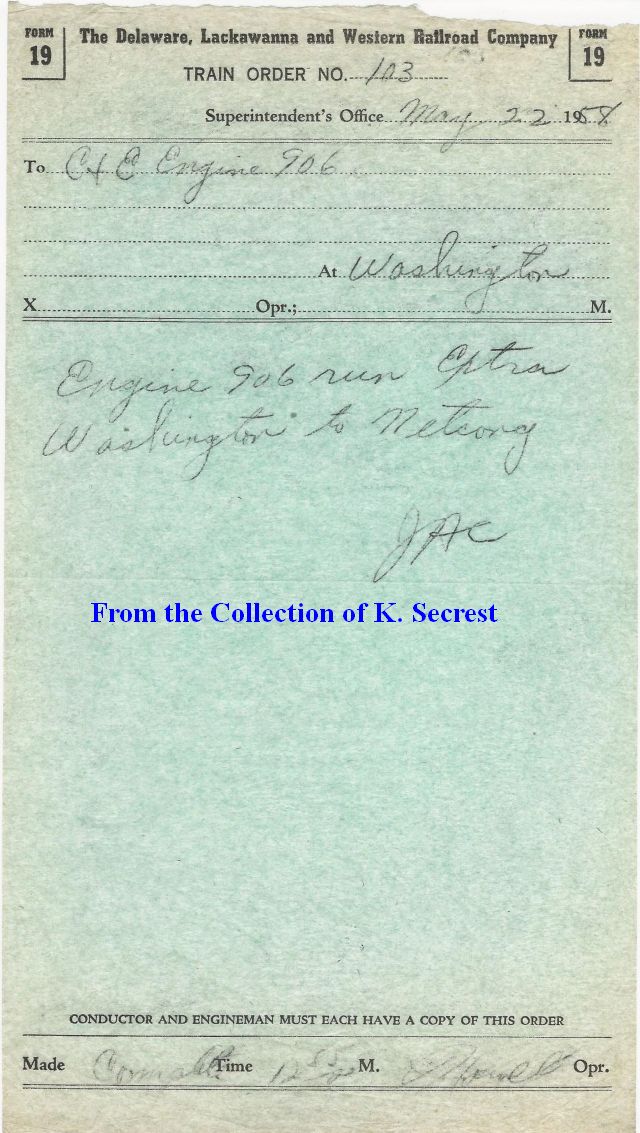 FORM 19 The Delaware, Lackawanna and Western Railroad Company FORM 19
TRAIN ORDER NO. 103
Superintendent's Office May 22 1958
To C & E Engine 906
At Washington
X Opr.; M.
Engine 906 run Extra
Washington to Netcong
JAC
From the Collection of K. Secrest
CONDUCTOR AND ENGINEMAN MUST EACH HAVE A COPY OF THIS ORDER
Made Time M. Opr.